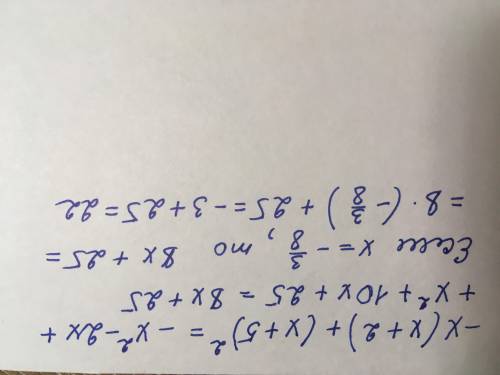 -x(x+2)+(x+5)² = -x²-2x+
+x²+10x+25 = 8x+25
Если x = -3/8, то 8x+25 =
= 8·(-3/8)+25 = -3+25 = 22